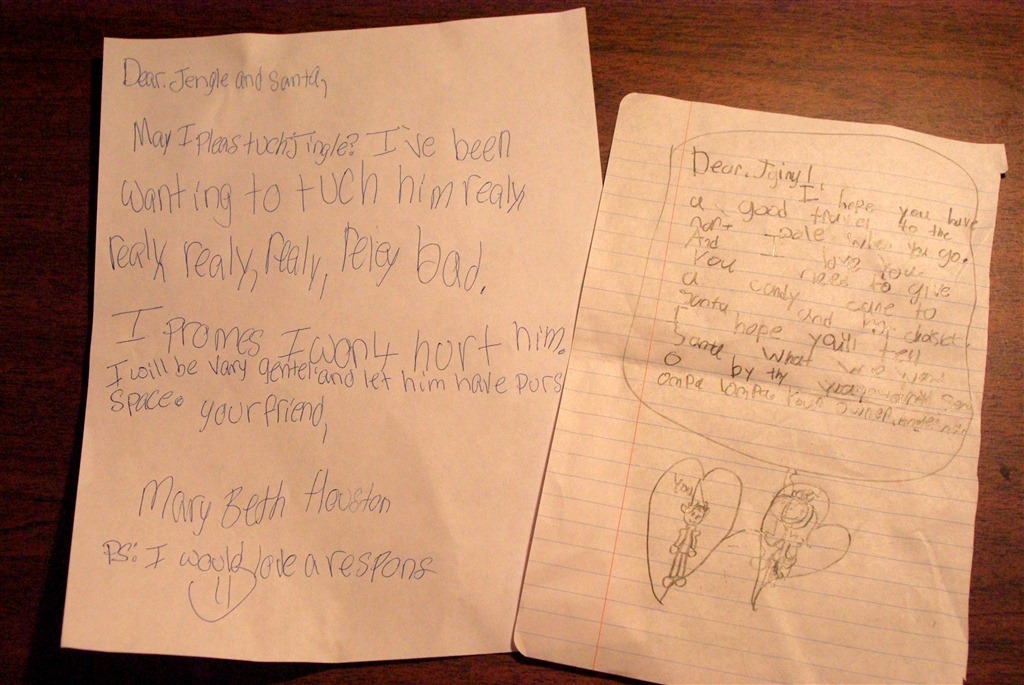 Dear. Jengle and Santa,
May I pleas tuch Jingle? I've been
wanting to tuch him realy
realy, realy, realy, Reley bad.
I promes I wont hort him.
I will be vary gentel and let him have purs
space.
your friend,
Mary Beth Houston
PS: I would love a respons
Dear. Jginy!
I hope you have
a good travel to the
nort pole when you go.
And I love you.
You need to give
a candy cane to
Santa and
I hope youll tell
Santa what we want
O by th
ompa lompa
You